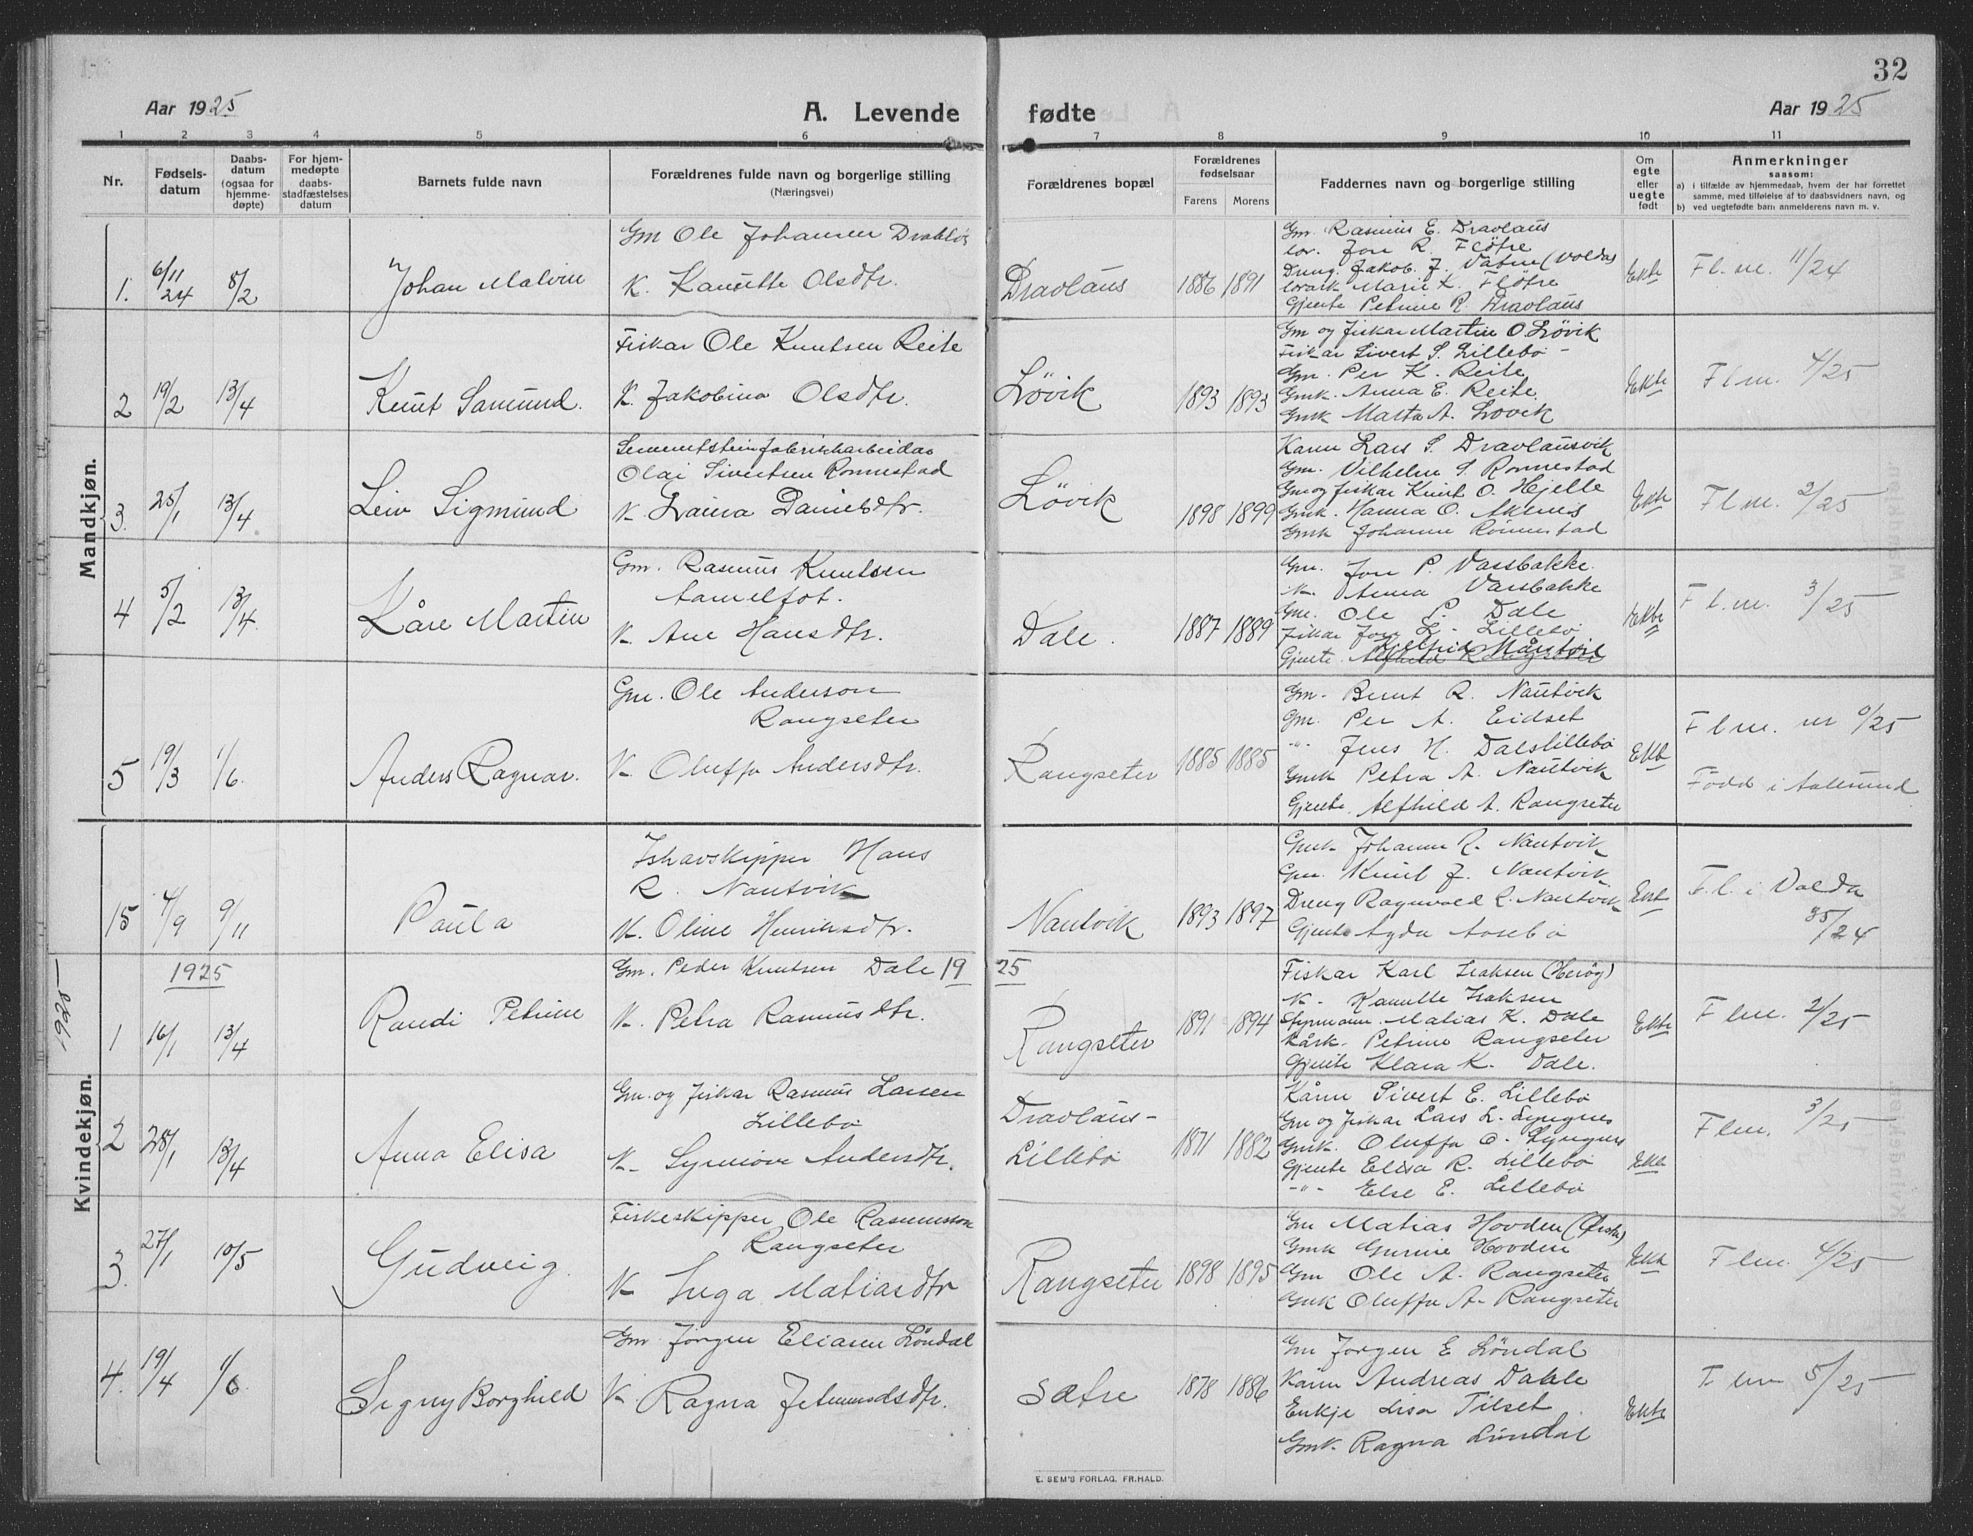 32
Aar 1925
A. Levende
fødte
Aar 1925
1 2 3 4 5 6 7 8 9 10 11
Nr.
Fødsels-
datum
Daabs-
datum
(ogsaa for
hjemme-
døpte)
For hjem-
medøpte
daabs-
stadfæstelses
datum
Barnets fulde navn
Forældrenes fulde navn og borgerlige stilling
(Næringsvei)
Forældrenes bopæl
Forældrenes
fødselsaar
Farens Morens
Faddernes navn og borgerlige stilling
Om
egte
eller
uegte
født
Anmerkninger
saasom:
a) i tilfælde av hjemmedaab, hvem der har forrettet
samme, med tilføielse af to daabsvidners navn, og
b) ved uegtefødte barn anmelderens navn m. v.
Mandkjøn.
1. 6/11 24 8/2
Johan Malvin
Gm Ole Johansen Drabløs
K. Kanutte Olsdtr.
Dravlaus
1886 1891
Gm. Rasmus E. Dravlaus
Jon R. Fløtre
Dreng. Jakob J. Vatne (Volda)
Marie K. Fløtre
Gjente Petrine R. Dravlaus
Ekte
F. l. m. 11/24
2 19/2 13/4
Knut Samund.
Fiskar Ole Knutsen Reite
K. Jakobina Olsdtr.
Løvik
1893 1893
Gm og fiskar Martin O. Løvik
Fiskar Sivert S. Lillebø
Gm. Per K. Reite
Gmk. Anna E. Reite
Gmk Marta A. Løvik
Ekte
F l m. 4/25
3. 25/1 13/4
Leiv Sigmund
Sementsteinfabrikkarbeidar
Olai Sivertsen Ronnestad
K Laura Danielsdtr.
Løvik
1898 1899
Kann Lars S. Dravlausvik
Gm. Vilhelm S. Ronnestad
Gm og fiskar Knut O. Hjelle
Gmk. Hanna O. Aknes
Gmk Johanne Ronnestad
Ekte
F l m. 2/25
4 5/2 13/4
Kåre Martin
Gm. Rasmus Knutsen
Aamelfot.
K Ane Hansdtr.
Dale.
1887 1889
Gm. Jon P. Vassbakke
K. Anna Vassbakke
Gm. Ole P. Dale
Fiskar Jon L. Lillebø
Gjente.
Ekte
F l. m. 3/25
5 19/3 1/6.
Anders Ragnar.
Gm. Ole Anderson
Rangseter
K Oluffa Andersdtr.
Rangseter
1885 1885
Gm. Bernt R. Nautvik
Gm. Per A. Eidset
-"- Jens H. Dalslillebø
Gmk Petra A. Nautvik
Gjente. Alfhild A. Rangseter
Ekte
F l m.
Född i Aalesund
15 4/9 9/11
Paula
Ishavskipper Hans
R. Nautvik
K. Oline Henriksdtr.
Nautvik
1893 1897
Gmk Johanne R. Nautvik
Gm. Knut J. Nautvik
Dreng Ragnvald R. Nautvik
Gjente Agda Aasebø
Ekte
F. l. i Volda
35/24
1925
1925
1925
Kvindekjøn.
1 16/1 13/4
Randi Petrine
Gm. Peder Knutsen Dale
K. Petra Rasmusdtr.
Rangseter
1891 1894
Fiskar Karl Isaksen (Herøy)
K. Kamille Isaksen
Styrmann. Matias K. Dale
Kårk. Petrine Rangseter
Gjente Klara K. Dale.
Ekte
F lm. 2/25
2 28/1 13/4
Anna Elisa
Gm. og fiskar Rasmus Larsen
Lillebø
K. Synnøve Andersdtr.
Dravlaus-
Lillebø
1871 1882
Kårm Sivert E. Lillebø
Gm og fiskar Lars L. Lyngnes
Gmk. Oluffa O. Lyngnes
Gjente Elisa R. Lillebø
-"- Else E. Lillebø
Ekte
F lm. 3/25
3. 27/1 10/5
Gudveig
Fiskeskipper Ole Rasmusson
Rangseter
K Inga Matiasdtr
Rangseter
1898 1895
Gm Matias Hovden (Ørsta)
Gmk Gurine Hovden
Gm Ole A. Rangseter
Gmk Oluffa A. Rangseter
Ekte
F lm. 4/25
4. 19/4 1/6
Signy Borghild
Gm. Jørgen Eliasen Løndal
K Ragna Jetmundsdtr.
Sætre
1878 1886
Gm Jorgen E Løndal
Kann Andreas Dahle
Enkje Lisa Tilset
Gmk. Ragna Løndal
Ekte
F. lm 5/25
E. SEM'S FORLAG, FR.HALD.